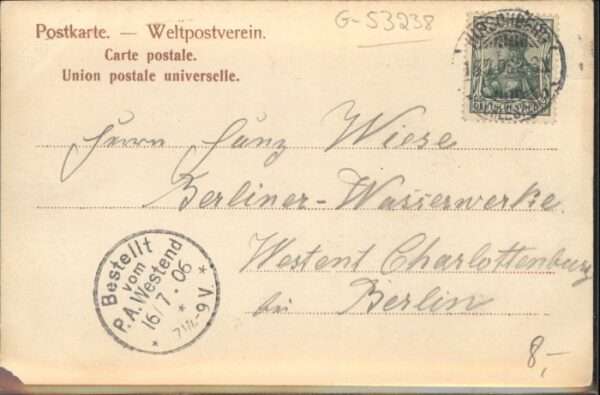 G-53238
Postkarte. — Weltpostverein.
Carte postale.
Union postale universelle.
DEUTSCHES REICH
Herrn Wiese
Berliner-Wasserwerke.
Westent Charlottenburg
bei Berlin
Bestellt
vom
P.A. Westend
16/7.06
* * *
7½-9V.
8,-